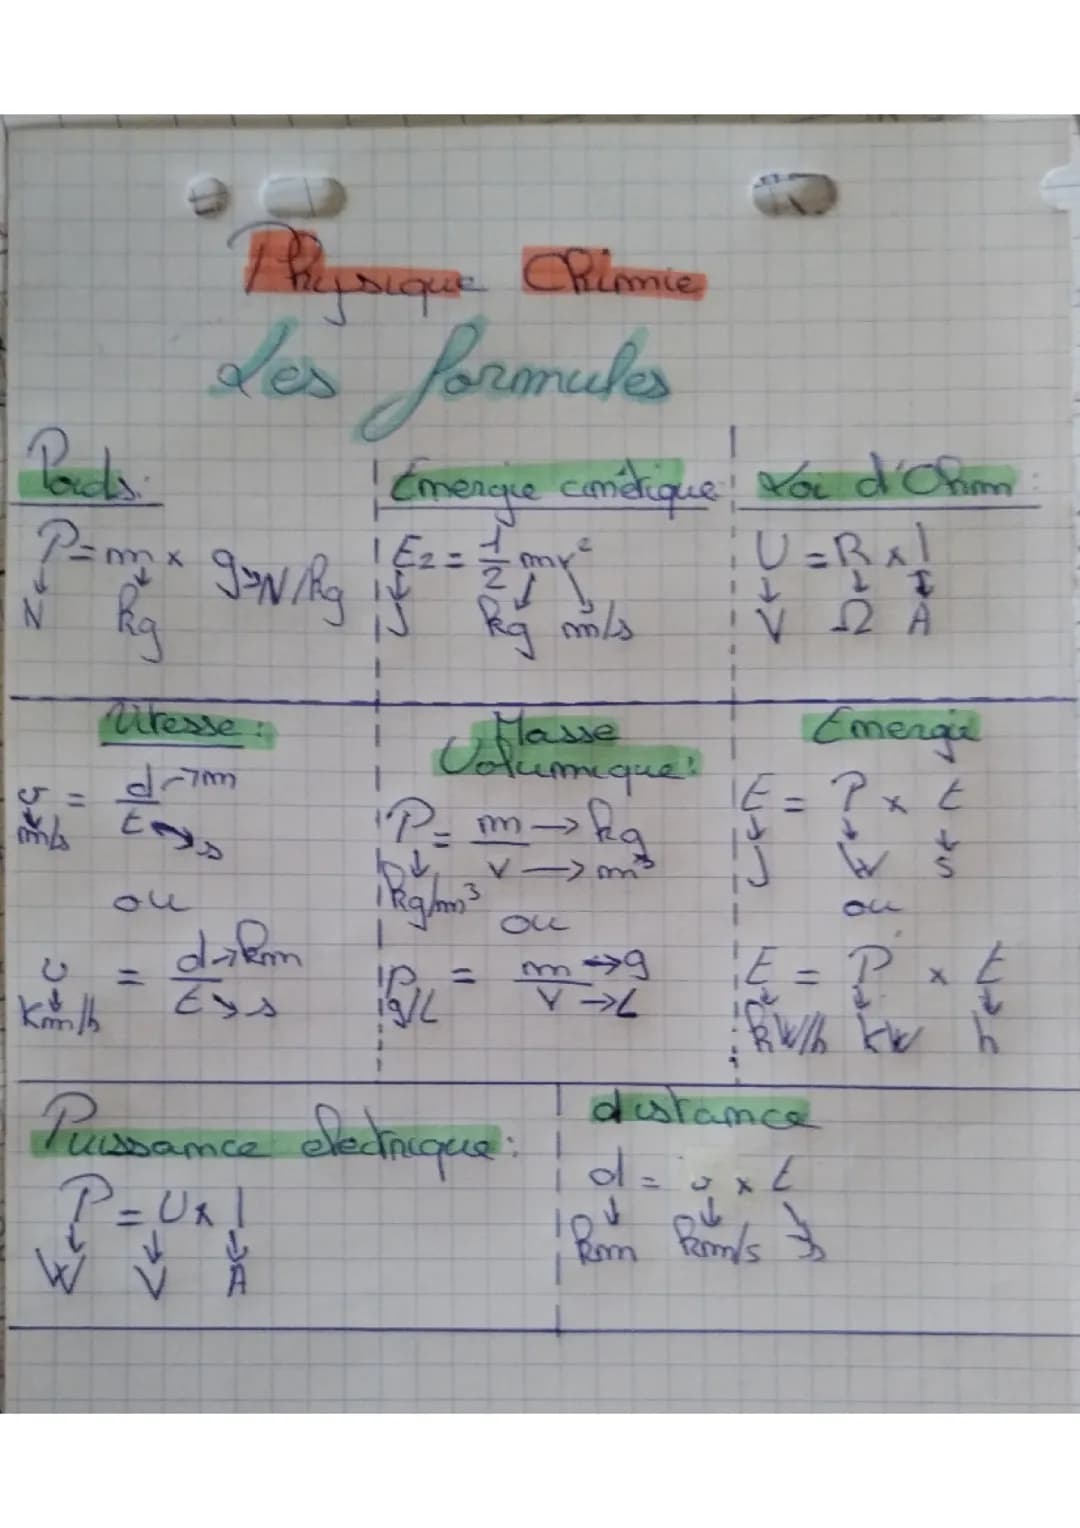 Physique Chimie
Les formules
Poids:
P = m x g → N/kg
N kg
Energie cinétique:
E2 = 1/2 mv²
J kg m/s
Loi d'Ohm:
U = R x I
V Ω A
Vitesse:
v = d → m
m/s t → s
ou
v = d → km
km/h t → s
Masse
Volumique:
P = m → kg
V → m³
kg/m³
ou
p = m → g
g/L V → L
Energie
E = P x t
J W s
ou
E = P x t
kW/h kW h
Puissance électrique:
P = U x I
W V A
distance
d = v x t
km km/s s